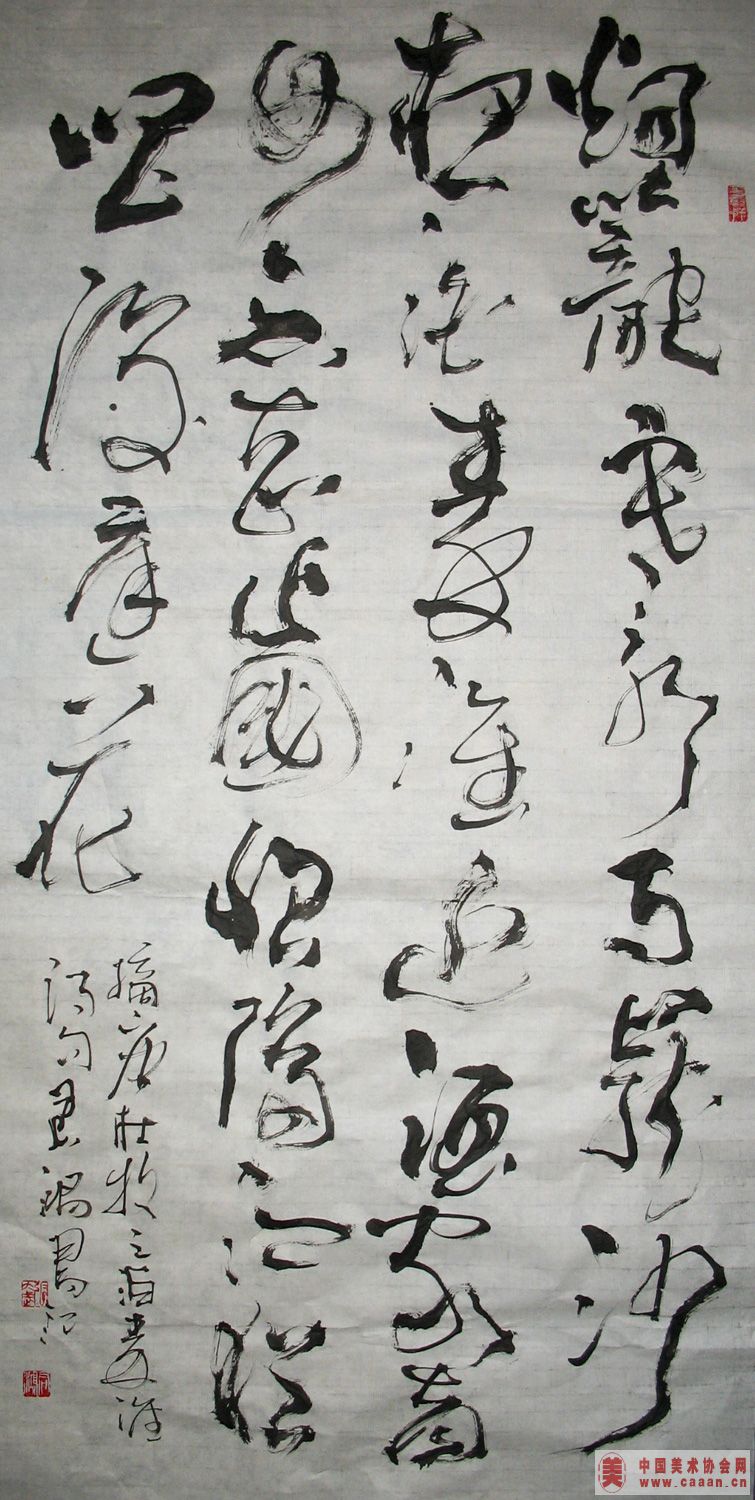 烟籠寒水月籠沙
夜泊秦淮近酒家商
女不知亡國恨隔江猶
唱後庭花
摘唐杜牧之泊秦淮
詩句
美 中国美术协会网
www.caaan.cn